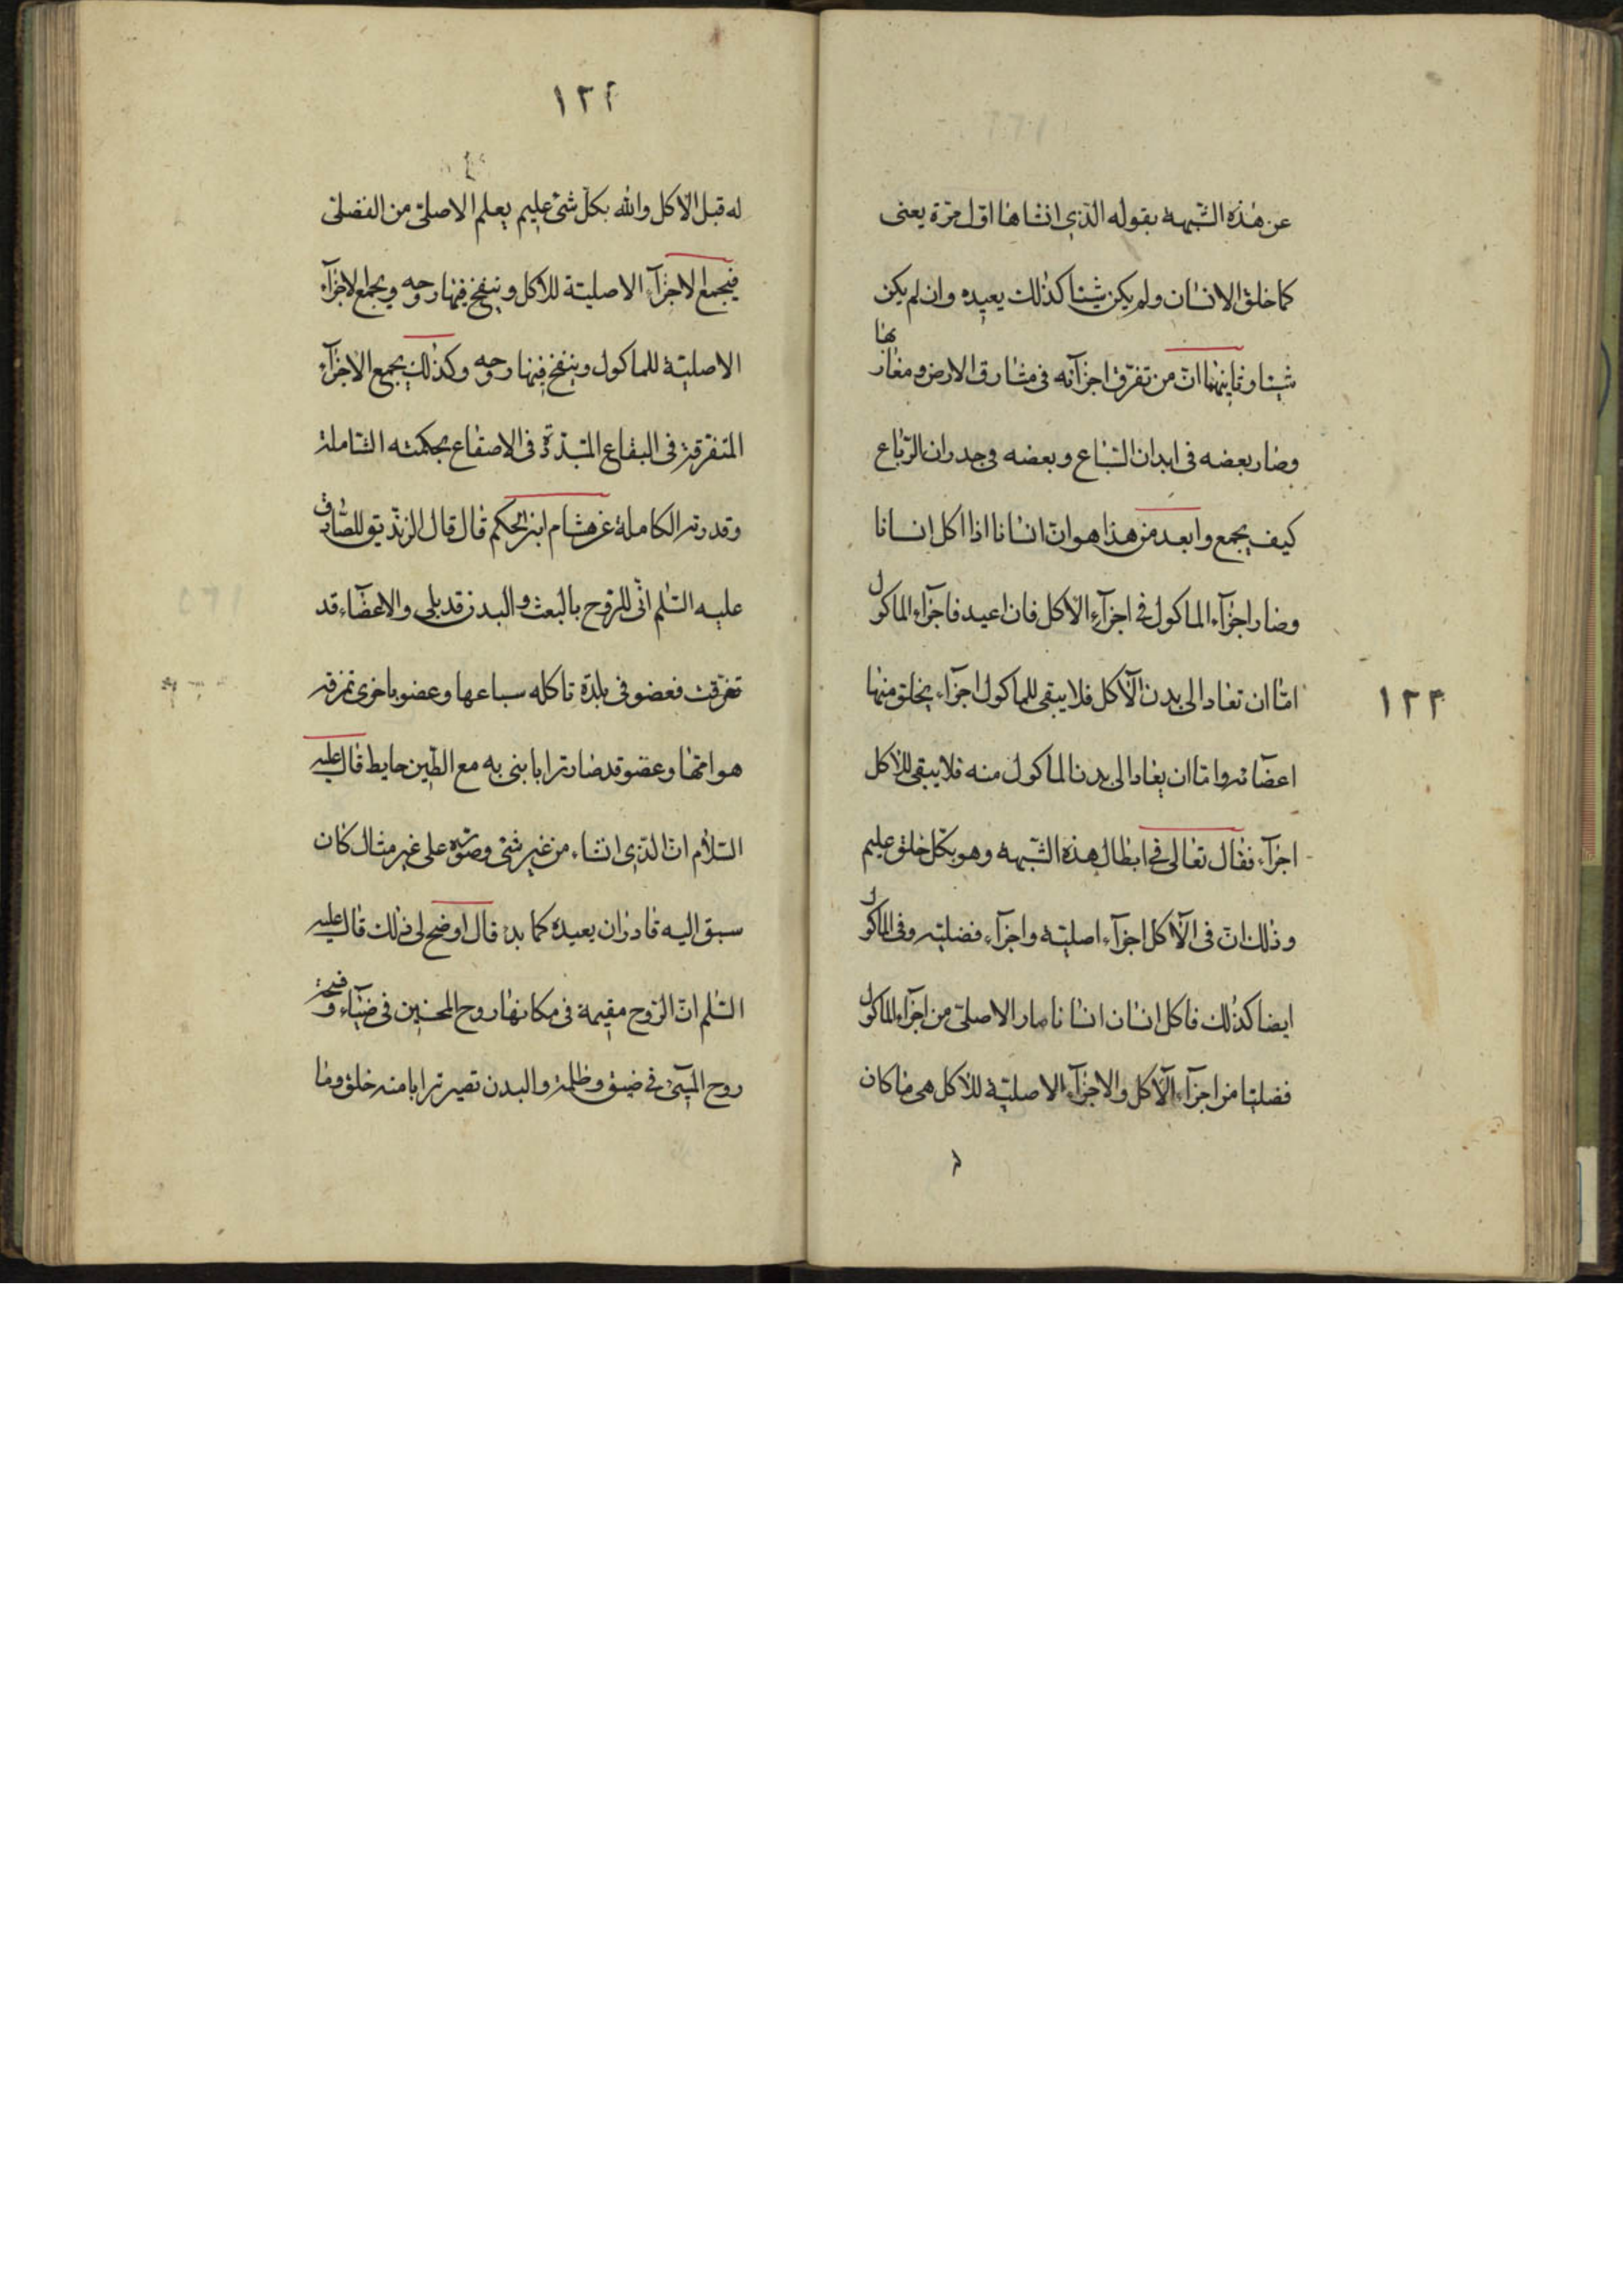 عن هذه الشّبهة بقوله الّذي انشاها اوّل مرّة يعنى
كما خلق الانسان ولم يكن شيئا كذلك يعيده وان لم يكن
شيئا وثانيهما انّ من تفرّق اجزآئه فى مشارق الارض ومغاربها
وصار بعضه فى ابدان السّباع وبعضه فى جدران الرّباع
كيف يجمع وابعد من هذا هو انّ انسانا اذا اكل انسانا
وصار اجزآء الماكول فى اجزآء الآكل فان اعيد فاجزآء الماكول
امّا ان تعاد الى بدن الآكل فلا يبقى للماكول اجزآء يخلق منها
١٢٣
اعضائه وامّا ان يعاد الى بدن الماكول منه فلا يبقى للآكل
اجزآء فقال تعالى فى ابطال هذه الشّبهة وهو بكلّ خلق عليم
وذلك انّ فى الآكل اجزآء اصليّة واجزآء فضليّه وفى الماكول
ايضا كذلك فاكل انسان انسانا صار الاصلىّ من اجزآء الماكول
فضليّا من اجزآء الآكل والاجزآء الاصليّة للآكل هى ما كان
١٢٤
له قبل الآكل والله بكلّ شئ عليم يعلم الاصلىّ من الفضلىّ
فيجمع الاجزآء الاصليّة للآكل وينفخ فيها روحه ويجمع الاجزآء
الاصليّة للماكول وينفخ فيها روحه وكذلك يجمع الاجزآء
المتفرقة فى البقاع المتبدّدة فى الاصقاع بحكمته الشّاملة
وقدرته الكاملة عن هشام ابن الحكم قال قال الزنديق للصّادق
عليه السّلم انّى للرّوح بالبعث والبدن قد بلى والاعضآء قد
تفرّقت فعضو فى بلدة تاكله سباعها وعضو باخرى تمزقه
هوامّها وعضو قد صار ترابا بنى به مع الطّين حايط قال عليه
السّلام انّ الّذي انشاء من غير شئ وصوّره على غير مثال كان
سبق اليه قادر ان يعيده كما بدء قال اوضح لى ذلك قال عليه
السّلم انّ الرّوح مقيمة فى مكانها روح المحسنين فى ضيآء وفسحة
روح المسئ فى ضيق وظلمة والبدن تصير ترابا منه خلق وما